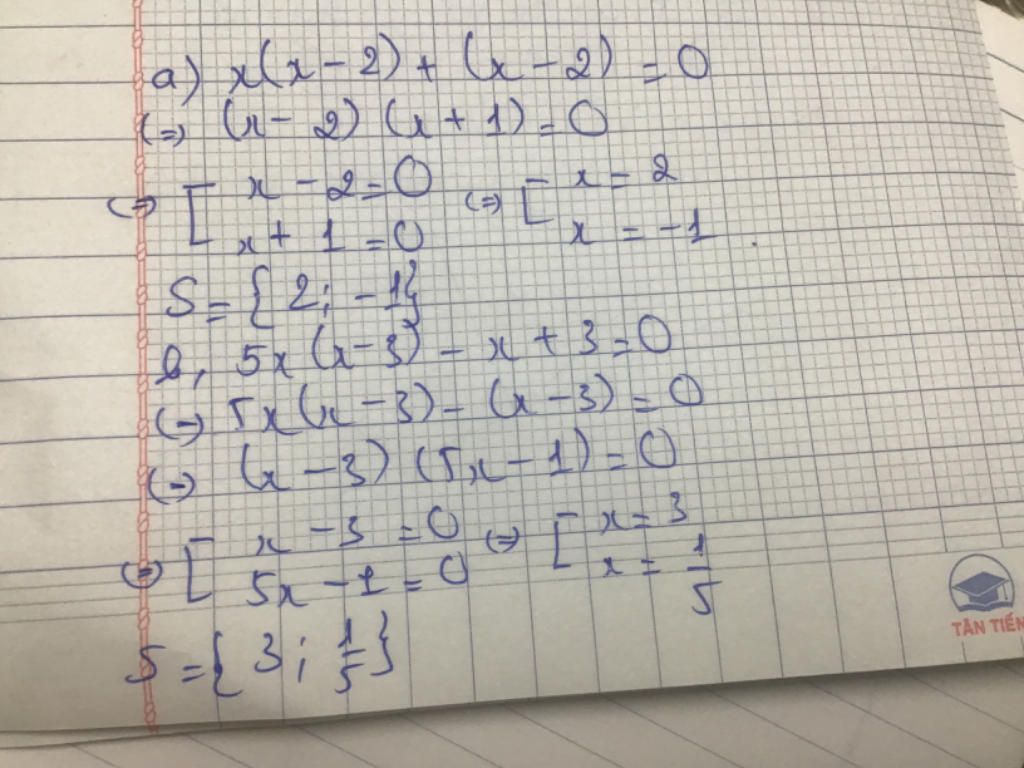 a) x(x-2) + (x-2) = 0
(=) (x-2) (x+1) = 0
(=) [ x-2=0 (=) [ x = 2
x+1=0 x = -1
S = { 2; -1}
b, 5x(x-3) - x + 3 = 0
(=) 5x(x-3) - (x-3) = 0
(=) (x-3) (5x-1) = 0
(=) [ x-3=0 (=) [ x = 3
5x-1=0 x = 1/5
S = { 3; 1/5 }
TÂN TIẾN